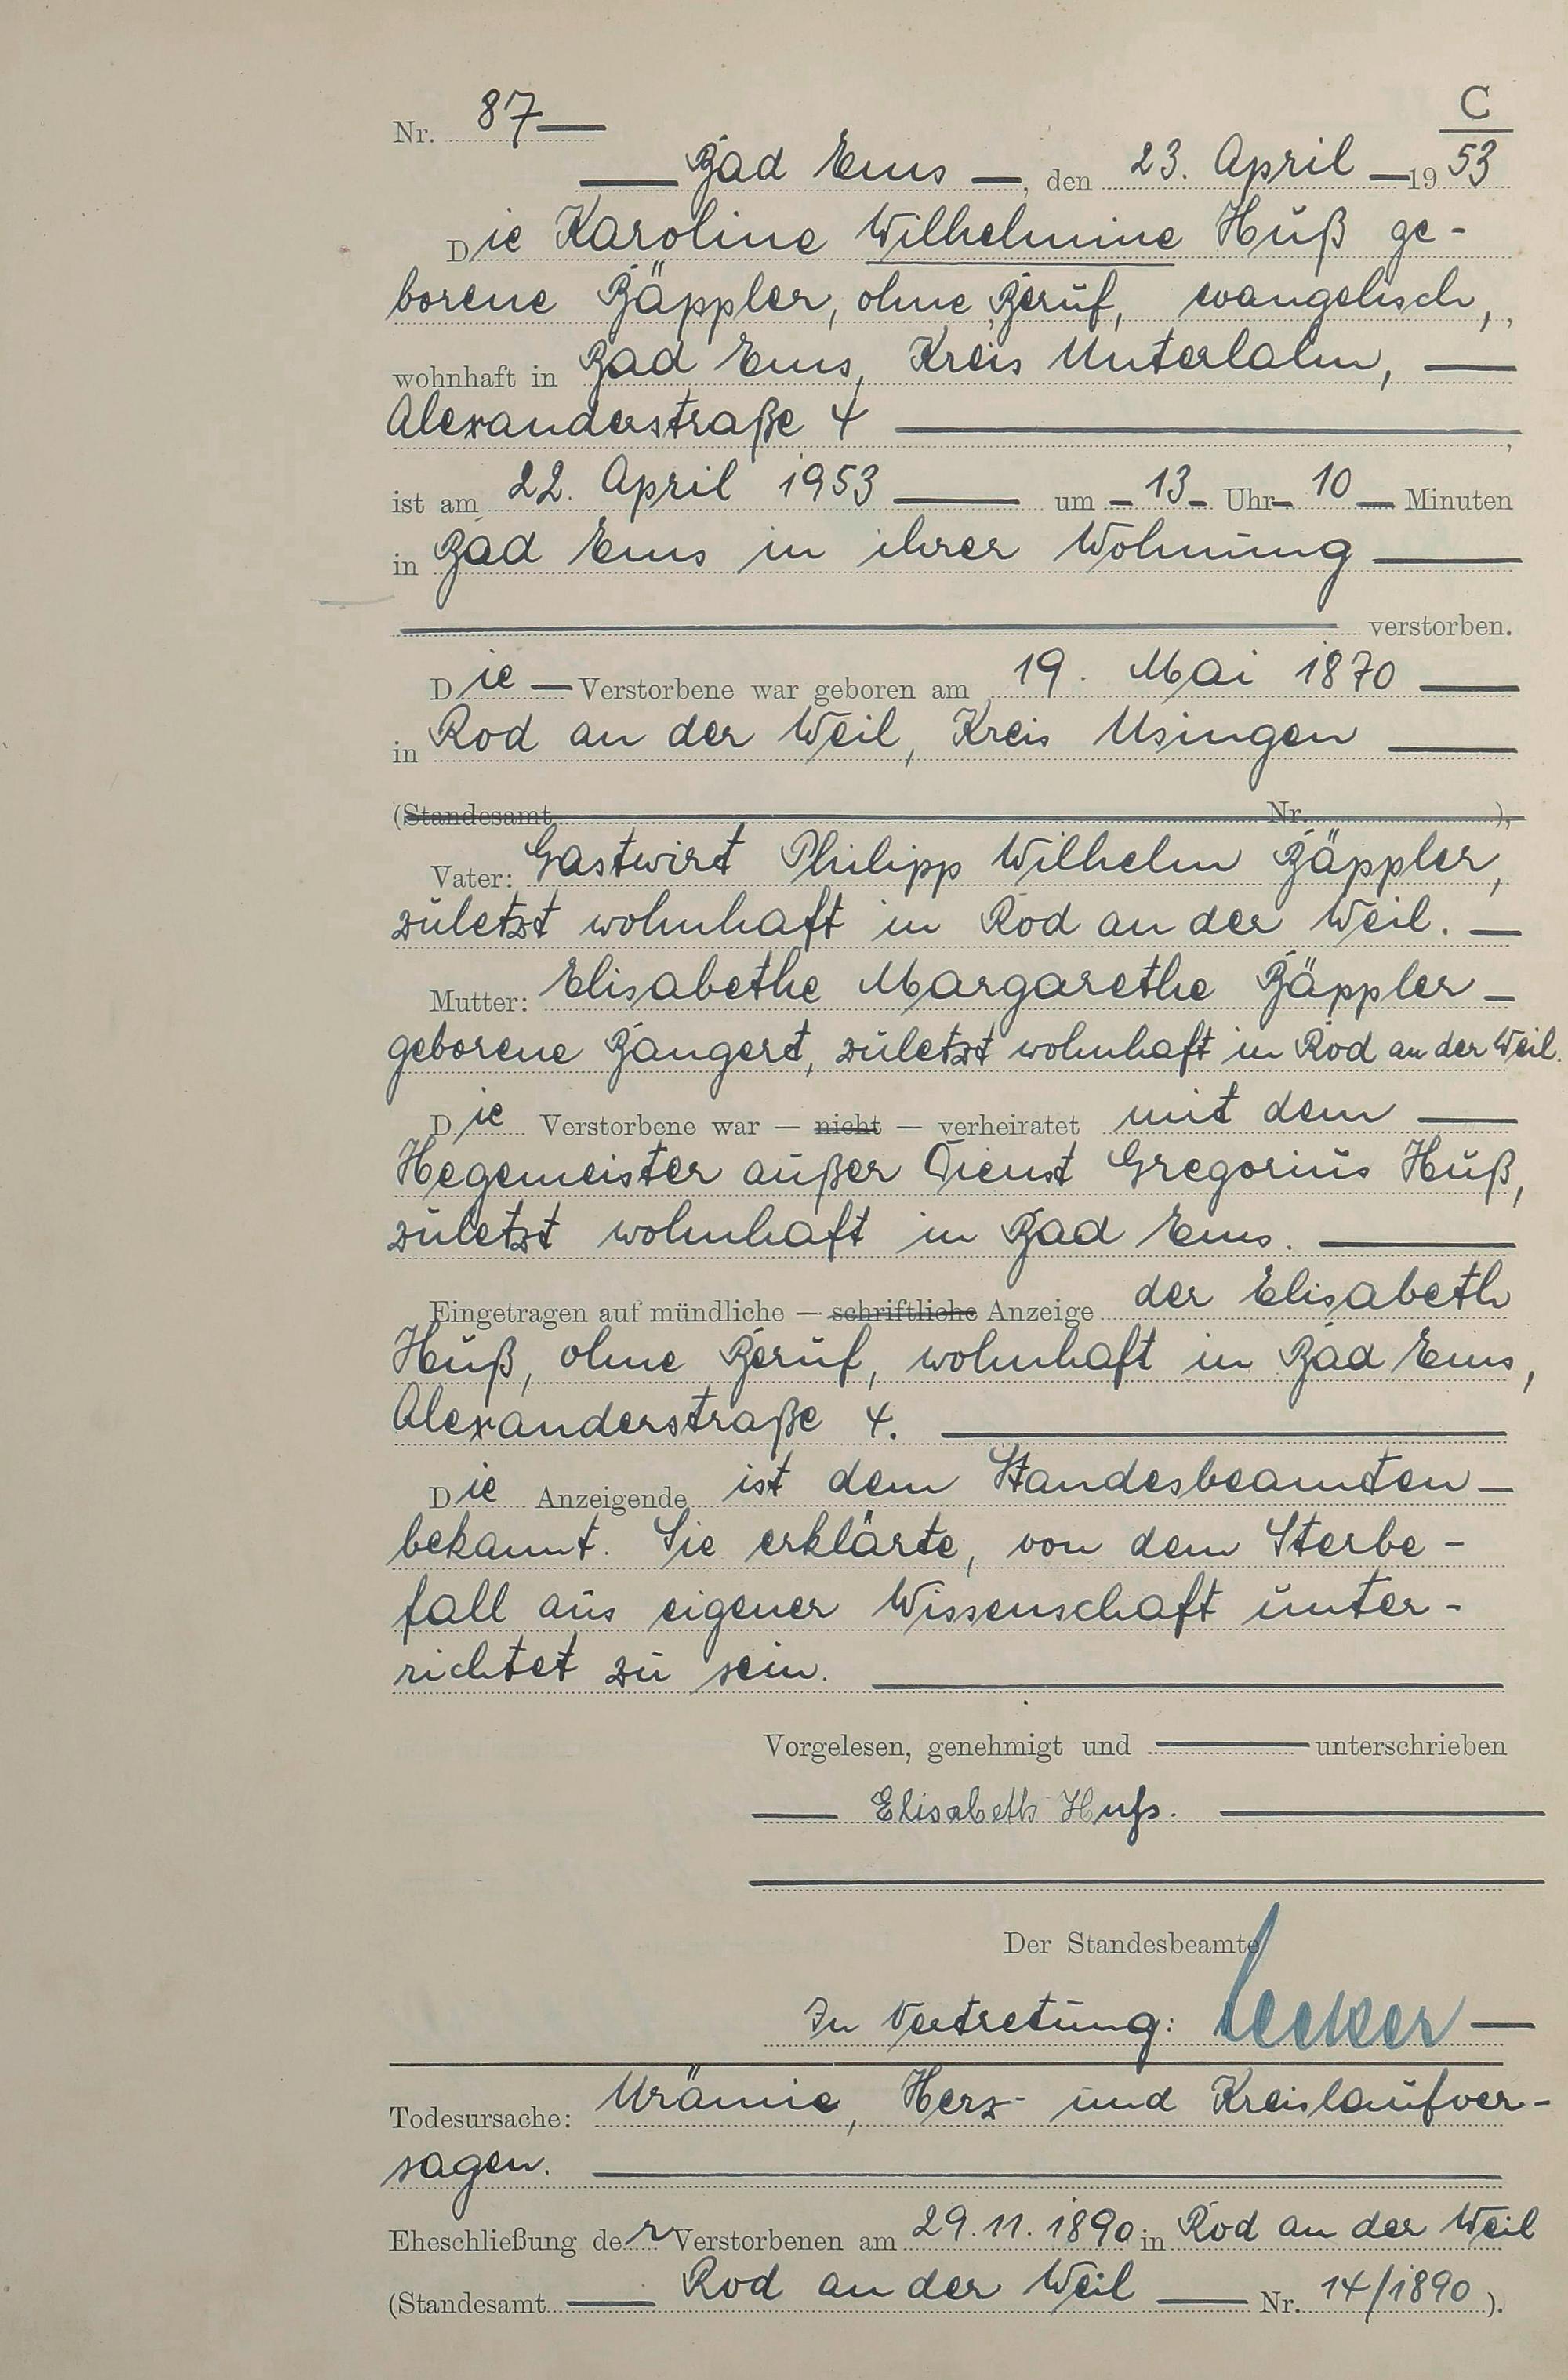 C
Nr. 87
Bad Ems, den 23. April 1953
Die Karoline Wilhelmine Huß ge-
borene Bäppler, ohne Beruf, evangelisch,
wohnhaft in Bad Ems, Kreis Unterlahn,
Alexanderstraße 4,
ist am 22. April 1953 um 13 Uhr 10 Minuten
in Bad Ems in ihrer Wohnung
verstorben.
Die Verstorbene war geboren am 19. Mai 1870
in Rod an der Weil, Kreis Usingen
(Standesamt Nr. ),
Vater: Gastwirt Philipp Wilhelm Bäppler,
zuletzt wohnhaft in Rod an der Weil.
Mutter: Elisabethe Margarethe Bäppler
geborene Bangert, zuletzt wohnhaft in Rod an der Weil.
Die Verstorbene war — nicht — verheiratet mit dem
Hegemeister außer Dienst Gregorius Huß,
zuletzt wohnhaft in Bad Ems.
Eingetragen auf mündliche — schriftliche Anzeige der Elisabeth
Huß, ohne Beruf, wohnhaft in Bad Ems,
Alexanderstraße 4.
Die Anzeigende ist dem Standesbeamten
bekannt. Sie erklärte, von dem Sterbe-
fall aus eigener Wissenschaft unter-
richtet zu sein.
Vorgelesen, genehmigt und unterschrieben
Elisabeth Huß.
Der Standesbeamte
In Vertretung:
Todesursache: Urämie, Herz- und Kreislaufver-
sagen.
Eheschließung der Verstorbenen am 29.11.1890 in Rod an der Weil
(Standesamt Rod an der Weil Nr. 14/1890 ).